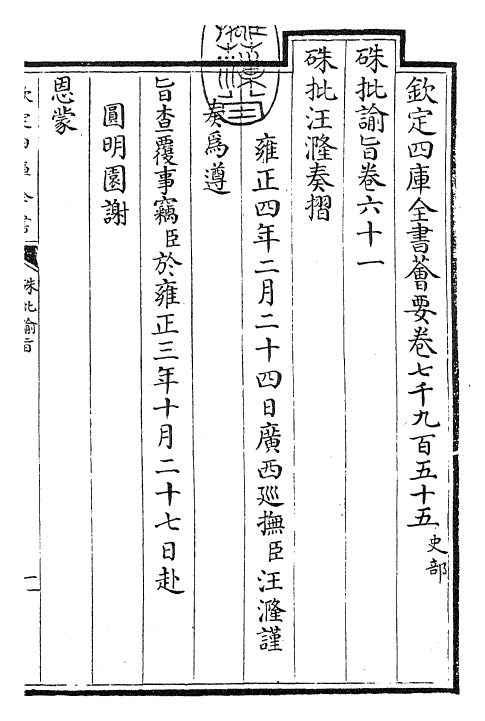 欽定四庫全書薈要卷七千九百五十五 史部
硃批諭旨卷六十一
硃批汪漋奏摺
雍正四年二月二十四日廣西廵撫臣汪漋謹
奏為遵
旨查覆事竊臣於雍正三年十月二十七日赴
圓明園謝
恩蒙
硃批諭旨
一